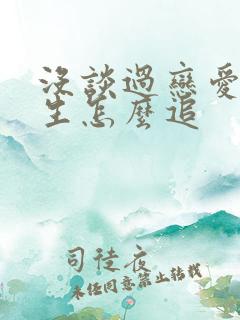 没談過戀愛
生怎麼追
司徒夜
未经同意禁止转载